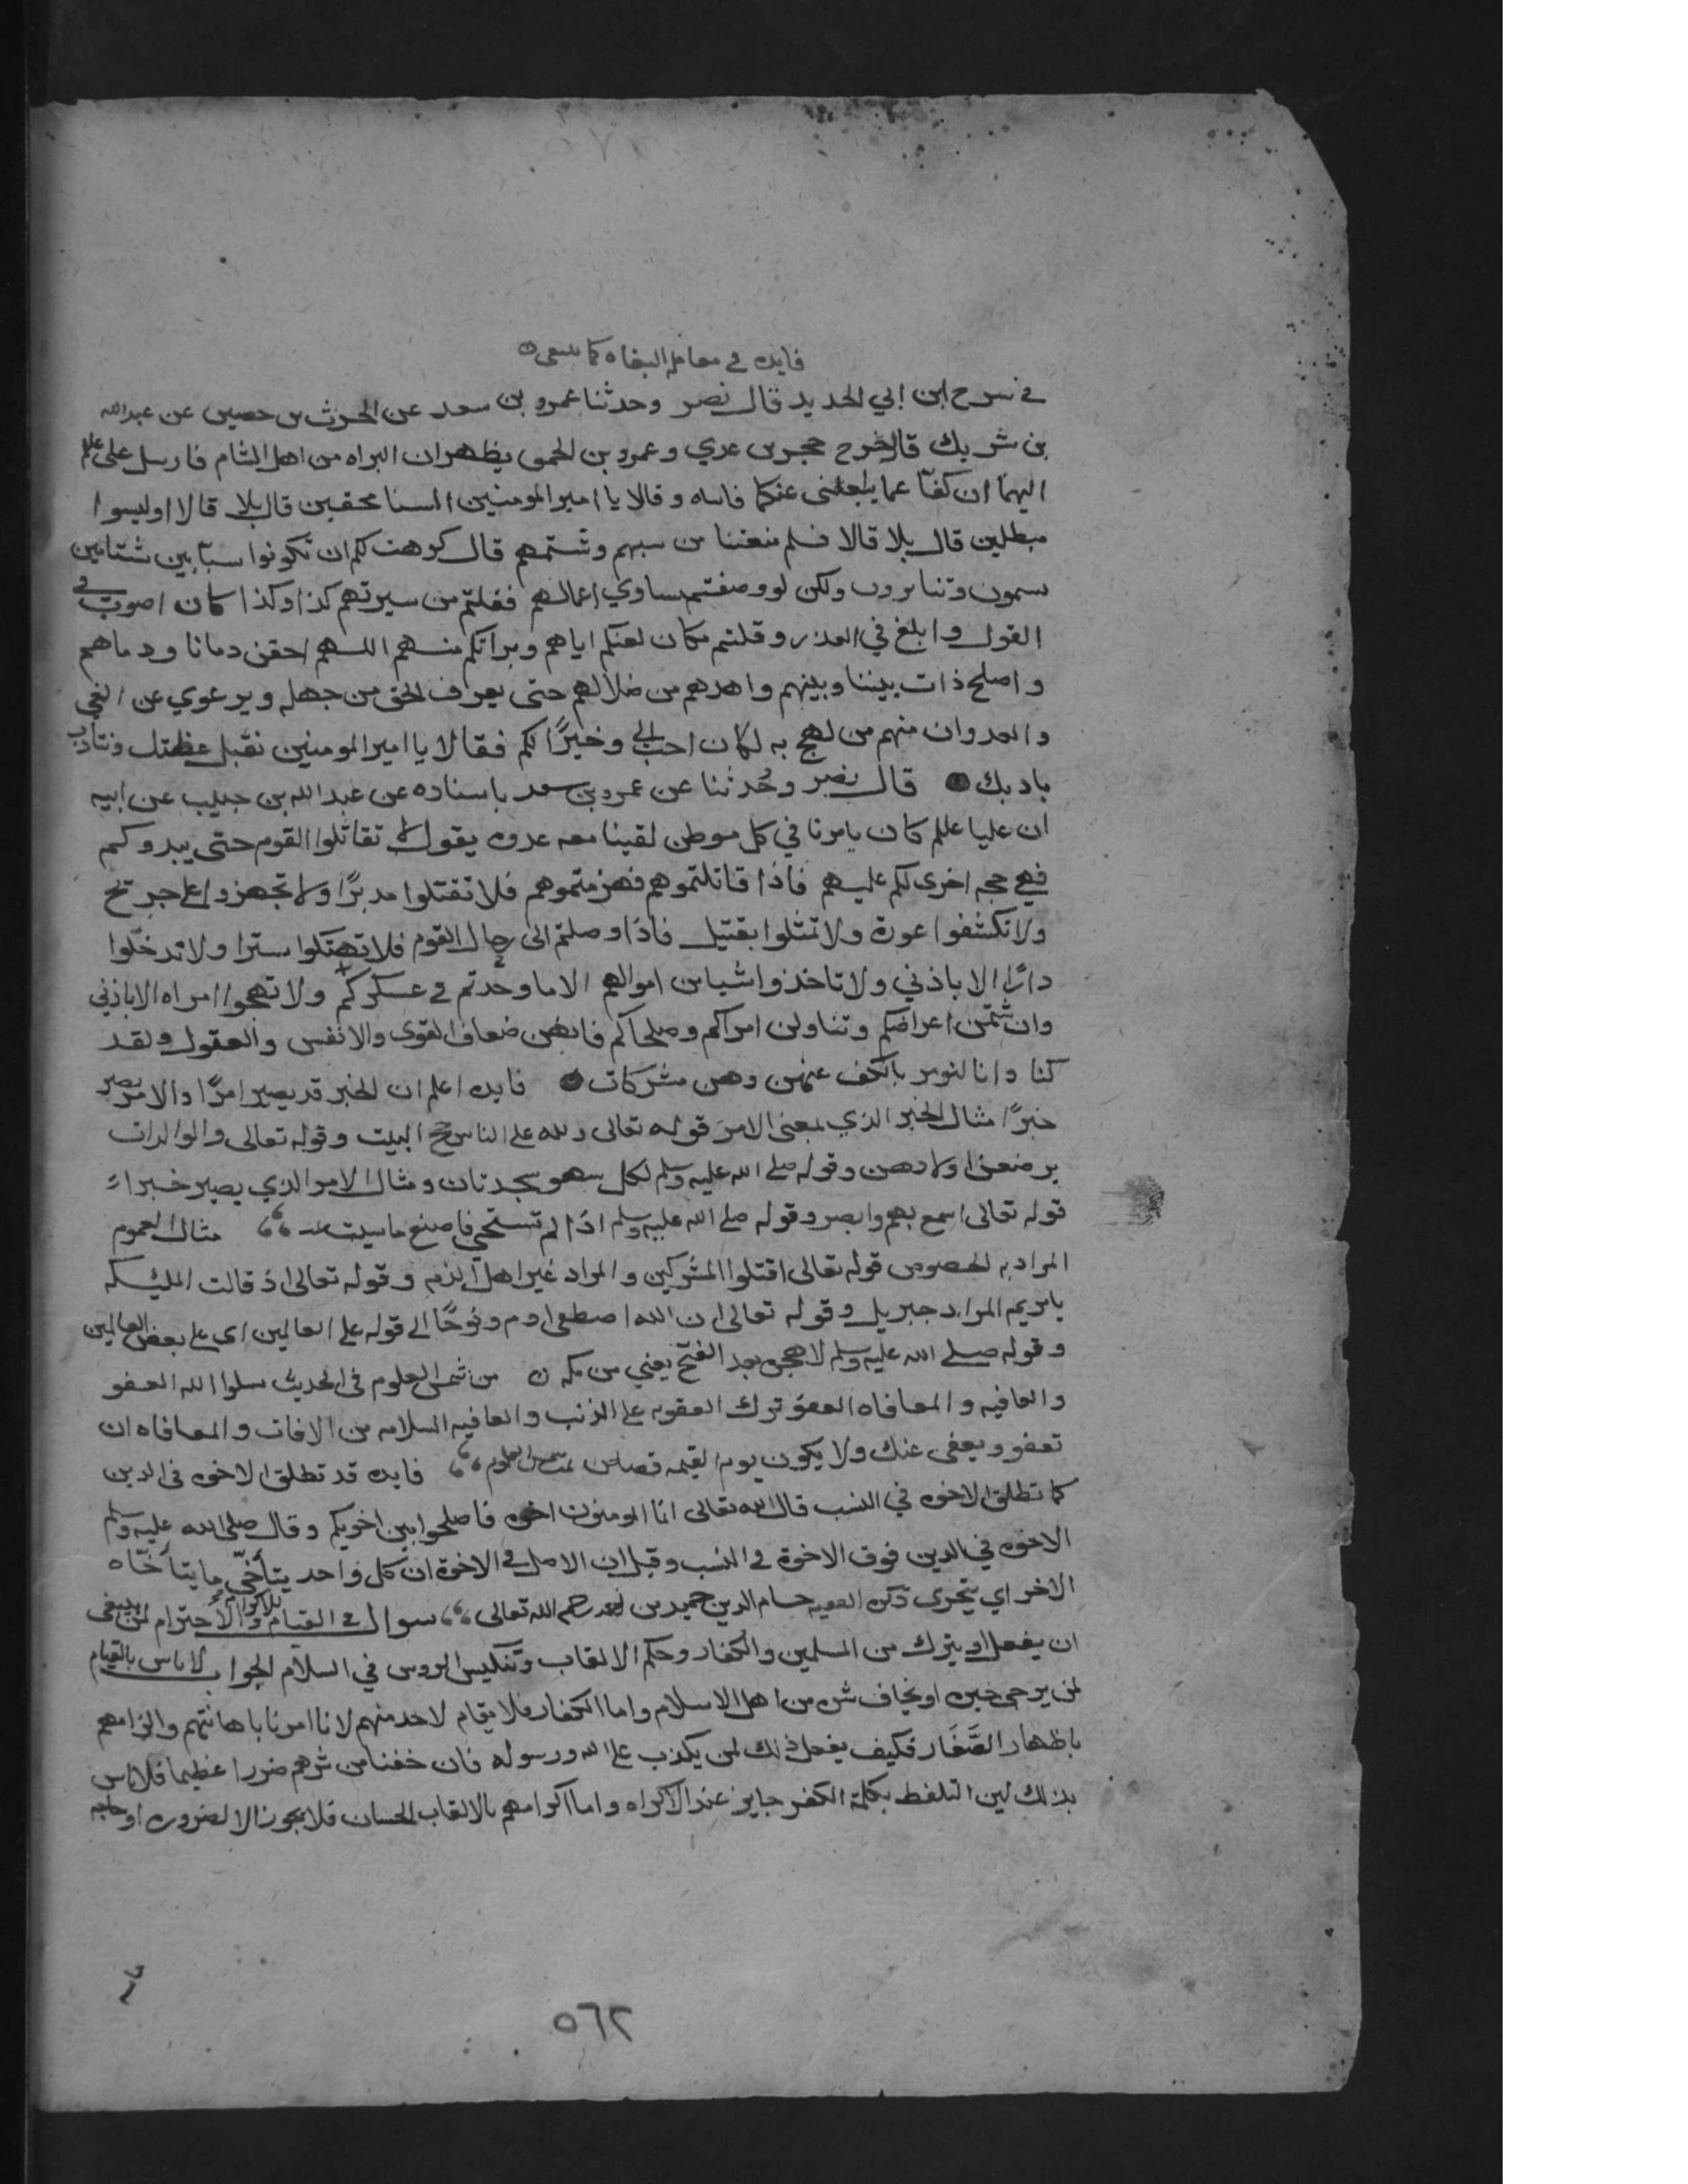 فايده في معامله البغاه كما ينبغي
في شرح ابن ابي الحديد قال نصر وحدثنا عمرو بن سعد عن الحرث بن حصين عن عبدالله
بن شريك قال خرج حجر بن عدي وعمرو بن الحمق يظهران البراه من اهل الشام فارسل علي علم
اليهما ان كفّا عما يبلغني عنكما فاتياه وقالا يا امير المومنين السنا محقين قال بلا قالا اوليسوا
مبطلين قال بلا قالا فلم منعتنا من سبهم وشتمهم قال كرهت لكم ان تكونوا سبّابين شتامين
يسمون وتنابرون ولكن لو وصفتم مساوي اعمالهم فقلتم من سيرتهم كذا وكذا كان اصوب في
القول وابلغ في العذر وقلتم مكان لعنكم اياهم وبراتكم منهم اللهم احقن دمانا ودماهم
واصلح ذات بيننا وبينهم واهدهم من ضلالهم حتى يعرف الحق من جهله ويرعوي عن الغي
والعدوان منهم من لهج به لكان احب الي وخيرًا لكم فقالا يا امير المومنين نقبل عظتك ونتادب
بادبك قال نصر وحُدثنا عن عمرو بن سعد باسناده عن عبدالله بن جبيب عن ابيه
ان عليا علم كان يامرنا في كل موطن لقينا معه عدوه يقول لا تقاتلوا القوم حتى يبدوكم
فهي حجه اخرى لكم عليهم فاذا قاتلتموهم فهزمتموهم فلا تقتلوا مدبرًا ولا تجهزوا على جريح
ولا تكشفوا عورة ولا تمثلوا بقتيل فاذا وصلتم الى رحال القوم فلا تهتكوا سترا ولا تدخلوا
دارًا الا باذني ولا تاخذوا شيا من اموالهم الا ما وجدتم في عسكركم ولا تهيجوا امراه الا باذني
وان شتمن اعراضكم وتناولن امراكم وصلحاكم فانهن ضعاف القوى والانفس والعقول ولقد
كنا وانا لنومر بالكف عنهن وهن مشركات فايده اعلم ان الخبر قد يصير امرًا والامر يصير
خبرًا مثال الخبر الذي بمعنى الامر قوله تعالى ولله على الناس حج البيت وقوله تعالى والوالدات
يرضعن اولادهن وقوله صلى الله عليه وسلم لكل سهو سجدتان ومثال الامر الذي يصير خبراً
قوله تعالى اسمع بهم وابصر وقوله صلى الله عليه وسلم اذا لم تستحي فاصنع ما شيت مثال العموم
المراد به الخصوص قوله تعالى اقتلوا المشركين والمراد غير اهل الذمه وقوله تعالى اذ قالت المليكه
يا مريم المراد جبريل وقوله تعالى ان الله اصطفى ادم ونوحًا الى قوله على العالمين اى على بعض العالمين
وقوله صلى الله عليه وسلم لا هجره بعد الفتح يعني من مكه من شمس العلوم في الحديث سلوا الله العفو
والعافيه والمعافاه العفو ترك العقوبه على الذنب والعافيه السلامه من الافات والمعافاه ان
تعفو ويعفى عنك ولا يكون يوم القيمه قصاص تمت شمس العلوم فايده قد تطلق الاخوه في الدين
كما تطلق الاخوه في النسب قال الله تعالى انما المومنون اخوه فاصلحوا بين اخويكم وقال صلى الله عليه وسلم
الاخوه في الدين فوق الاخوة في النسب وقيل ان الاصل في الاخوة ان كل واحد يتأخّى ما يتأخّاه
الاخر اي يتحرى ذكره الفقيه حسام الدين حميد بن احمد رحمه الله تعالى سوال في القيام للاكرام والاحترام لمن ينبغي
ان يفعل او يترك من المسلمين والكفار وحكم الالقاب وتنكيس الروس في السلام الجواب لا باس بالقيام
لمن يرجى خيره او يخاف شره من اهل الاسلام واما الكفار فلا يقام لاحد منهم لانا امرنا باهانتهم والزامهم
باظهار الصَّغَار فكيف يفعل ذلك لمن يكذب على الله ورسوله فان خفنا من شرهم ضررا عظيما فلا باس
بذلك لين التلفظ بكلمة الكفر جايز عند الاكراه واما اكرامهم بالالقاب الحسان فلا يجوز الا لضروره او حاجه
٥٦٢